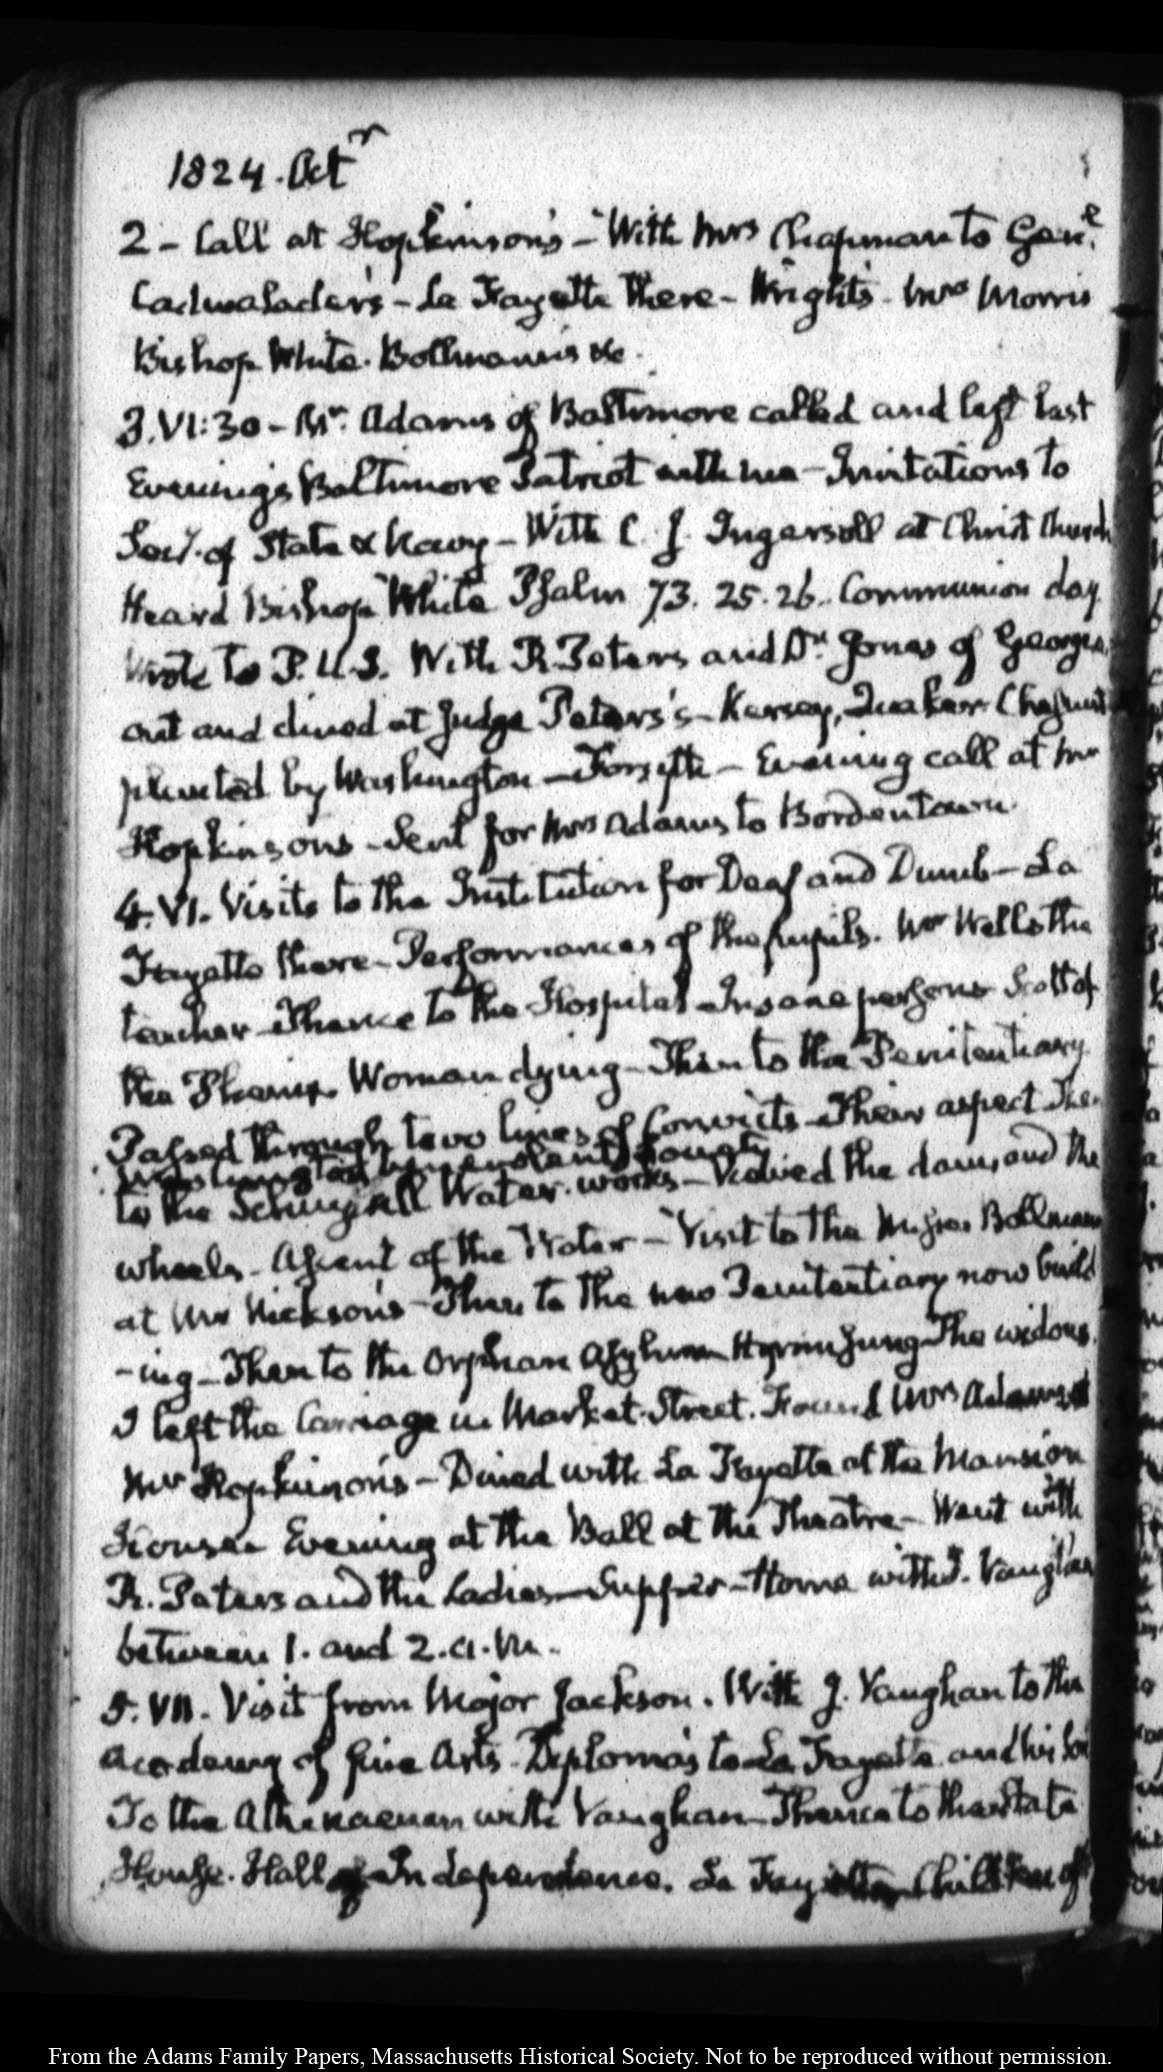 1824. Octr
2 - Call at Hopkinson's - With Mrs Chapman to Genl.
Cadwalader's - La Fayette there - Wright's. Mrs Morris
Bishop White. Bollman's &c.
3. VI:30 - Mr. Adams of Baltimore called and left last
Evening's Baltimore Patriot with me - Invitations to
Secy. of State & Navy - With C. J. Ingersoll at Christ Church
Heard Bishop White Psalm 73. 25. 26. Communion day
Wrote to P. U.S. With R. Peters and Dr. Jones of Georgia
out and dined at Judge Peters's - Kersey, Quaker - Chesnut
planted by Washington - Forsyth - Evening call at Mr
Hopkinsons - Sent for Mrs Adams to Bordentown.
4. VI. Visits to the Institution for Deaf and Dumb - La
Fayette there - Performances of the pupils. Mr Wells the
teacher - Thence to the Hospital - Insane persons Scott of
the Woman dying - Then to the Penitentiary
Passed through two lines of Convicts - Their aspect Then
to the Schuylkill Water works - Viewed the dam, and the
wheels - Ascent of the Water - Visit to the Misses Bollman
at Mr Nickson's - Then to the new Penitentiary now build
-ing - Then to the Orphan Asylum Hymn Sung - The widows.
I left the Carriage in Market Street. Found Mrs Adams at
Mr Hopkinson's - Dined with La Fayette at the Mansion
House - Evening at the Ball at the Theatre - Went with
R. Peters and the Ladies - Supper - Home with J. Vaughan
between 1. and 2. A.M.
5. VII. Visit from Major Jackson. With J. Vaughan to the
Academy of fine Arts - Diploma's to La Fayette and his Son
To the Athenaeum with Vaughan - Thence to the State
House. Hall of Independence. La Fayette Children of